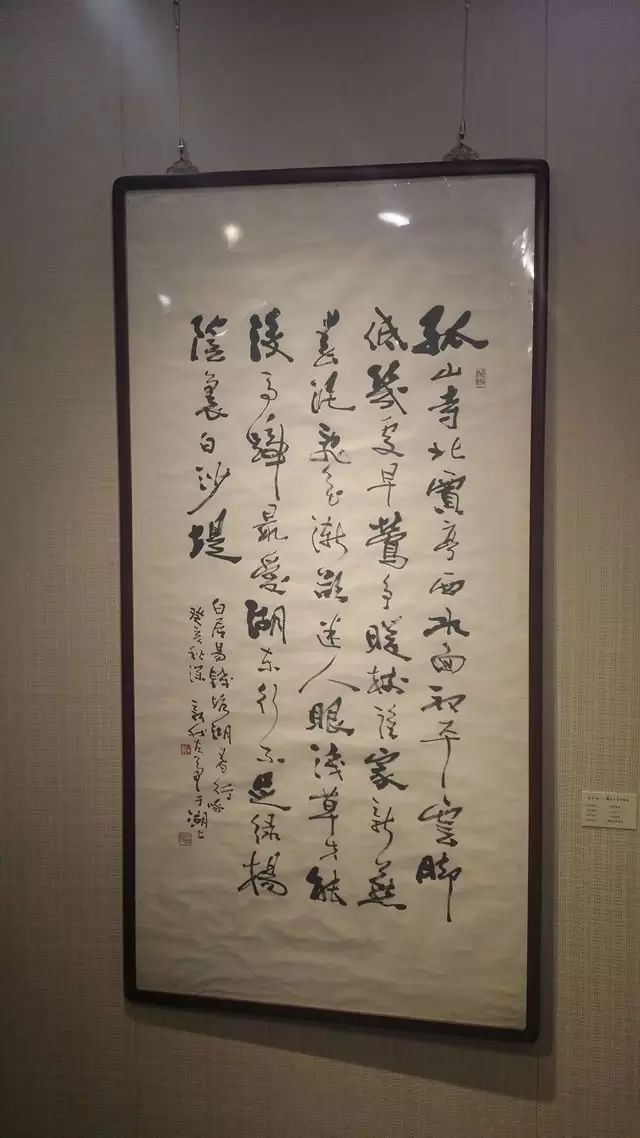 孤山寺北賈亭西水面初平雲脚
低幾處早鶯争暖樹誰家新燕
春泥亂花漸欲迷人眼淺草才能
没馬蹄最愛湖東行不足緑楊
陰裏白沙堤
白居易錢塘湖春行啄
癸亥秋深 新我左筆于湖上